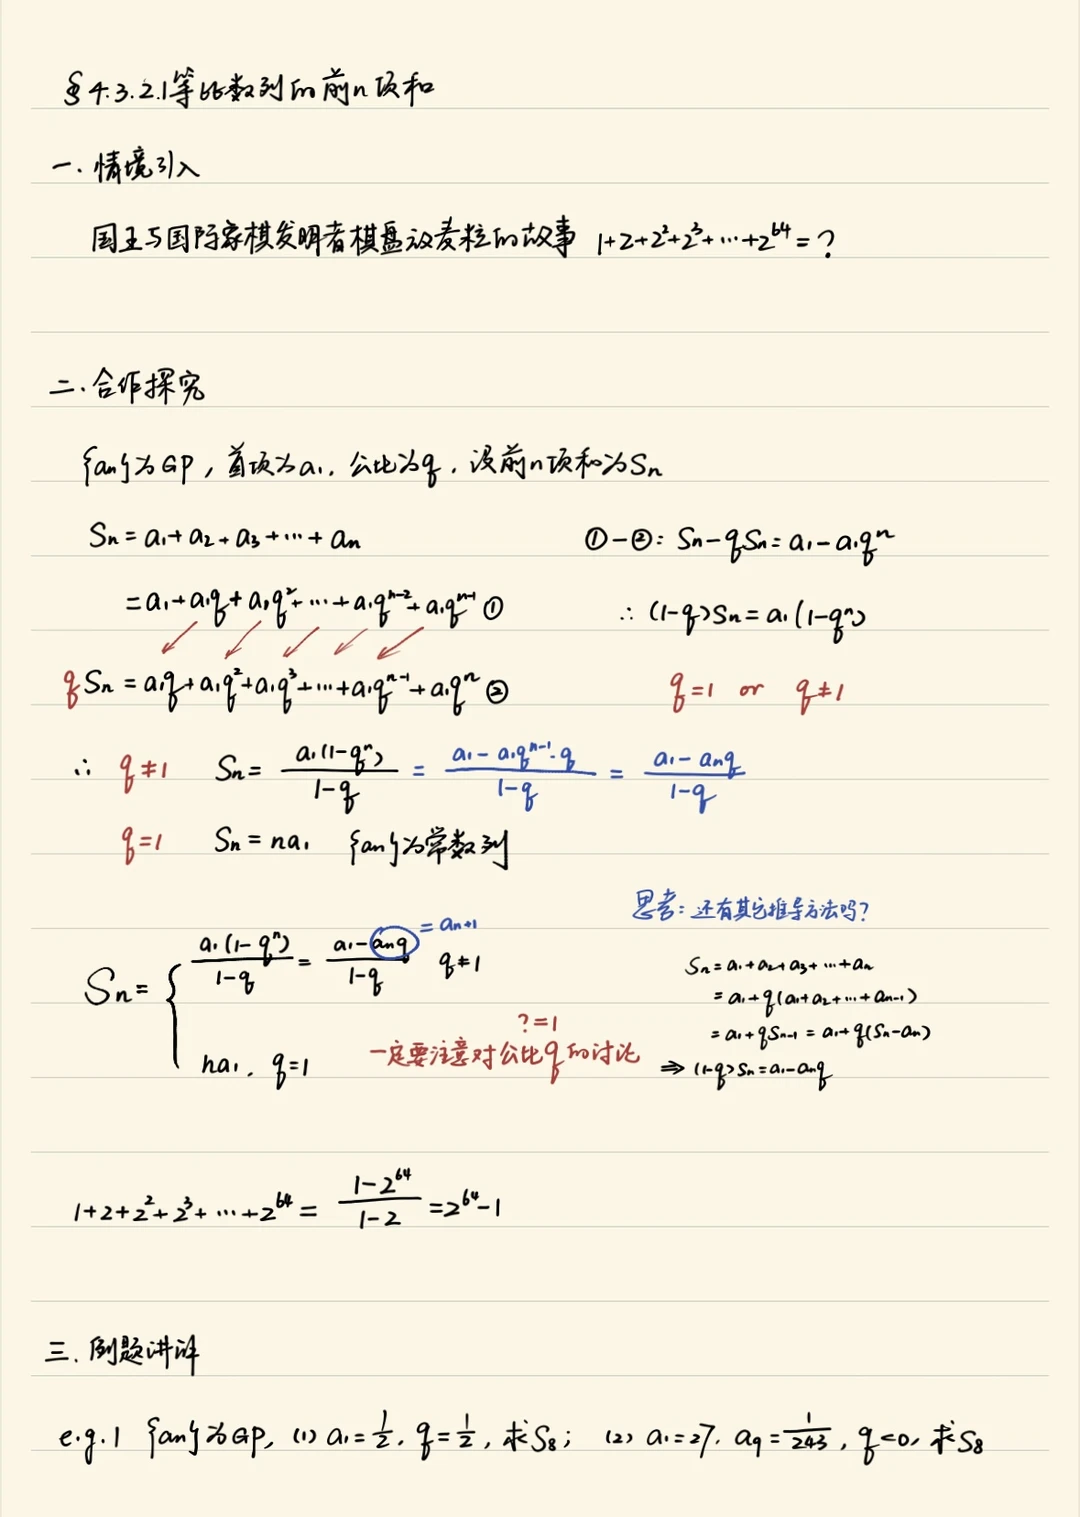 §4.3.2.1等比数列的前n项和
一.情境引入
国王与国际象棋发明者棋盘放麦粒的故事 1+2+2²+2³+…+2⁶⁴=?
二.合作探究
{an}为GP,首项为a₁,公比为q,设前n项和为Sn
Sn=a₁+a₂+a₃+…+an
=a₁+a₁q+a₁q²+…+a₁qⁿ⁻²+a₁qⁿ⁻¹ ①
qSn=a₁q+a₁q²+a₁q³+…+a₁qⁿ⁻¹+a₁qⁿ ②
①-②: Sn-qSn=a₁-a₁qⁿ
∴ (1-q)Sn=a₁(1-qⁿ)
q=1 or q≠1
∴ q≠1 Sn= a₁(1-qⁿ)/(1-q) = (a₁-a₁qⁿ⁻¹·q)/(1-q) = (a₁-anq)/(1-q)
q=1 Sn=na₁ {an}为常数列
Sn= { a₁(1-qⁿ)/(1-q) = (a₁-anq)/(1-q) q≠1
=an+1
na₁, q=1
?=1
一定要注意对公比q的讨论
思考:还有其它推导方法吗?
Sn=a₁+a₂+a₃+…+an
=a₁+q(a₁+a₂+…+an-1)
=a₁+qSn-1=a₁+q(Sn-an)
⇒(1-q)Sn=a₁-anq
1+2+2²+2³+…+2⁶⁴= (1-2⁶⁴)/(1-2) =2⁶⁴-1
三.例题讲评
e.g.1 {an}为GP, (1) a₁=1/2, q=1/2, 求S₈; (2) a₁=27, a₉=1/243, q<0, 求S₈